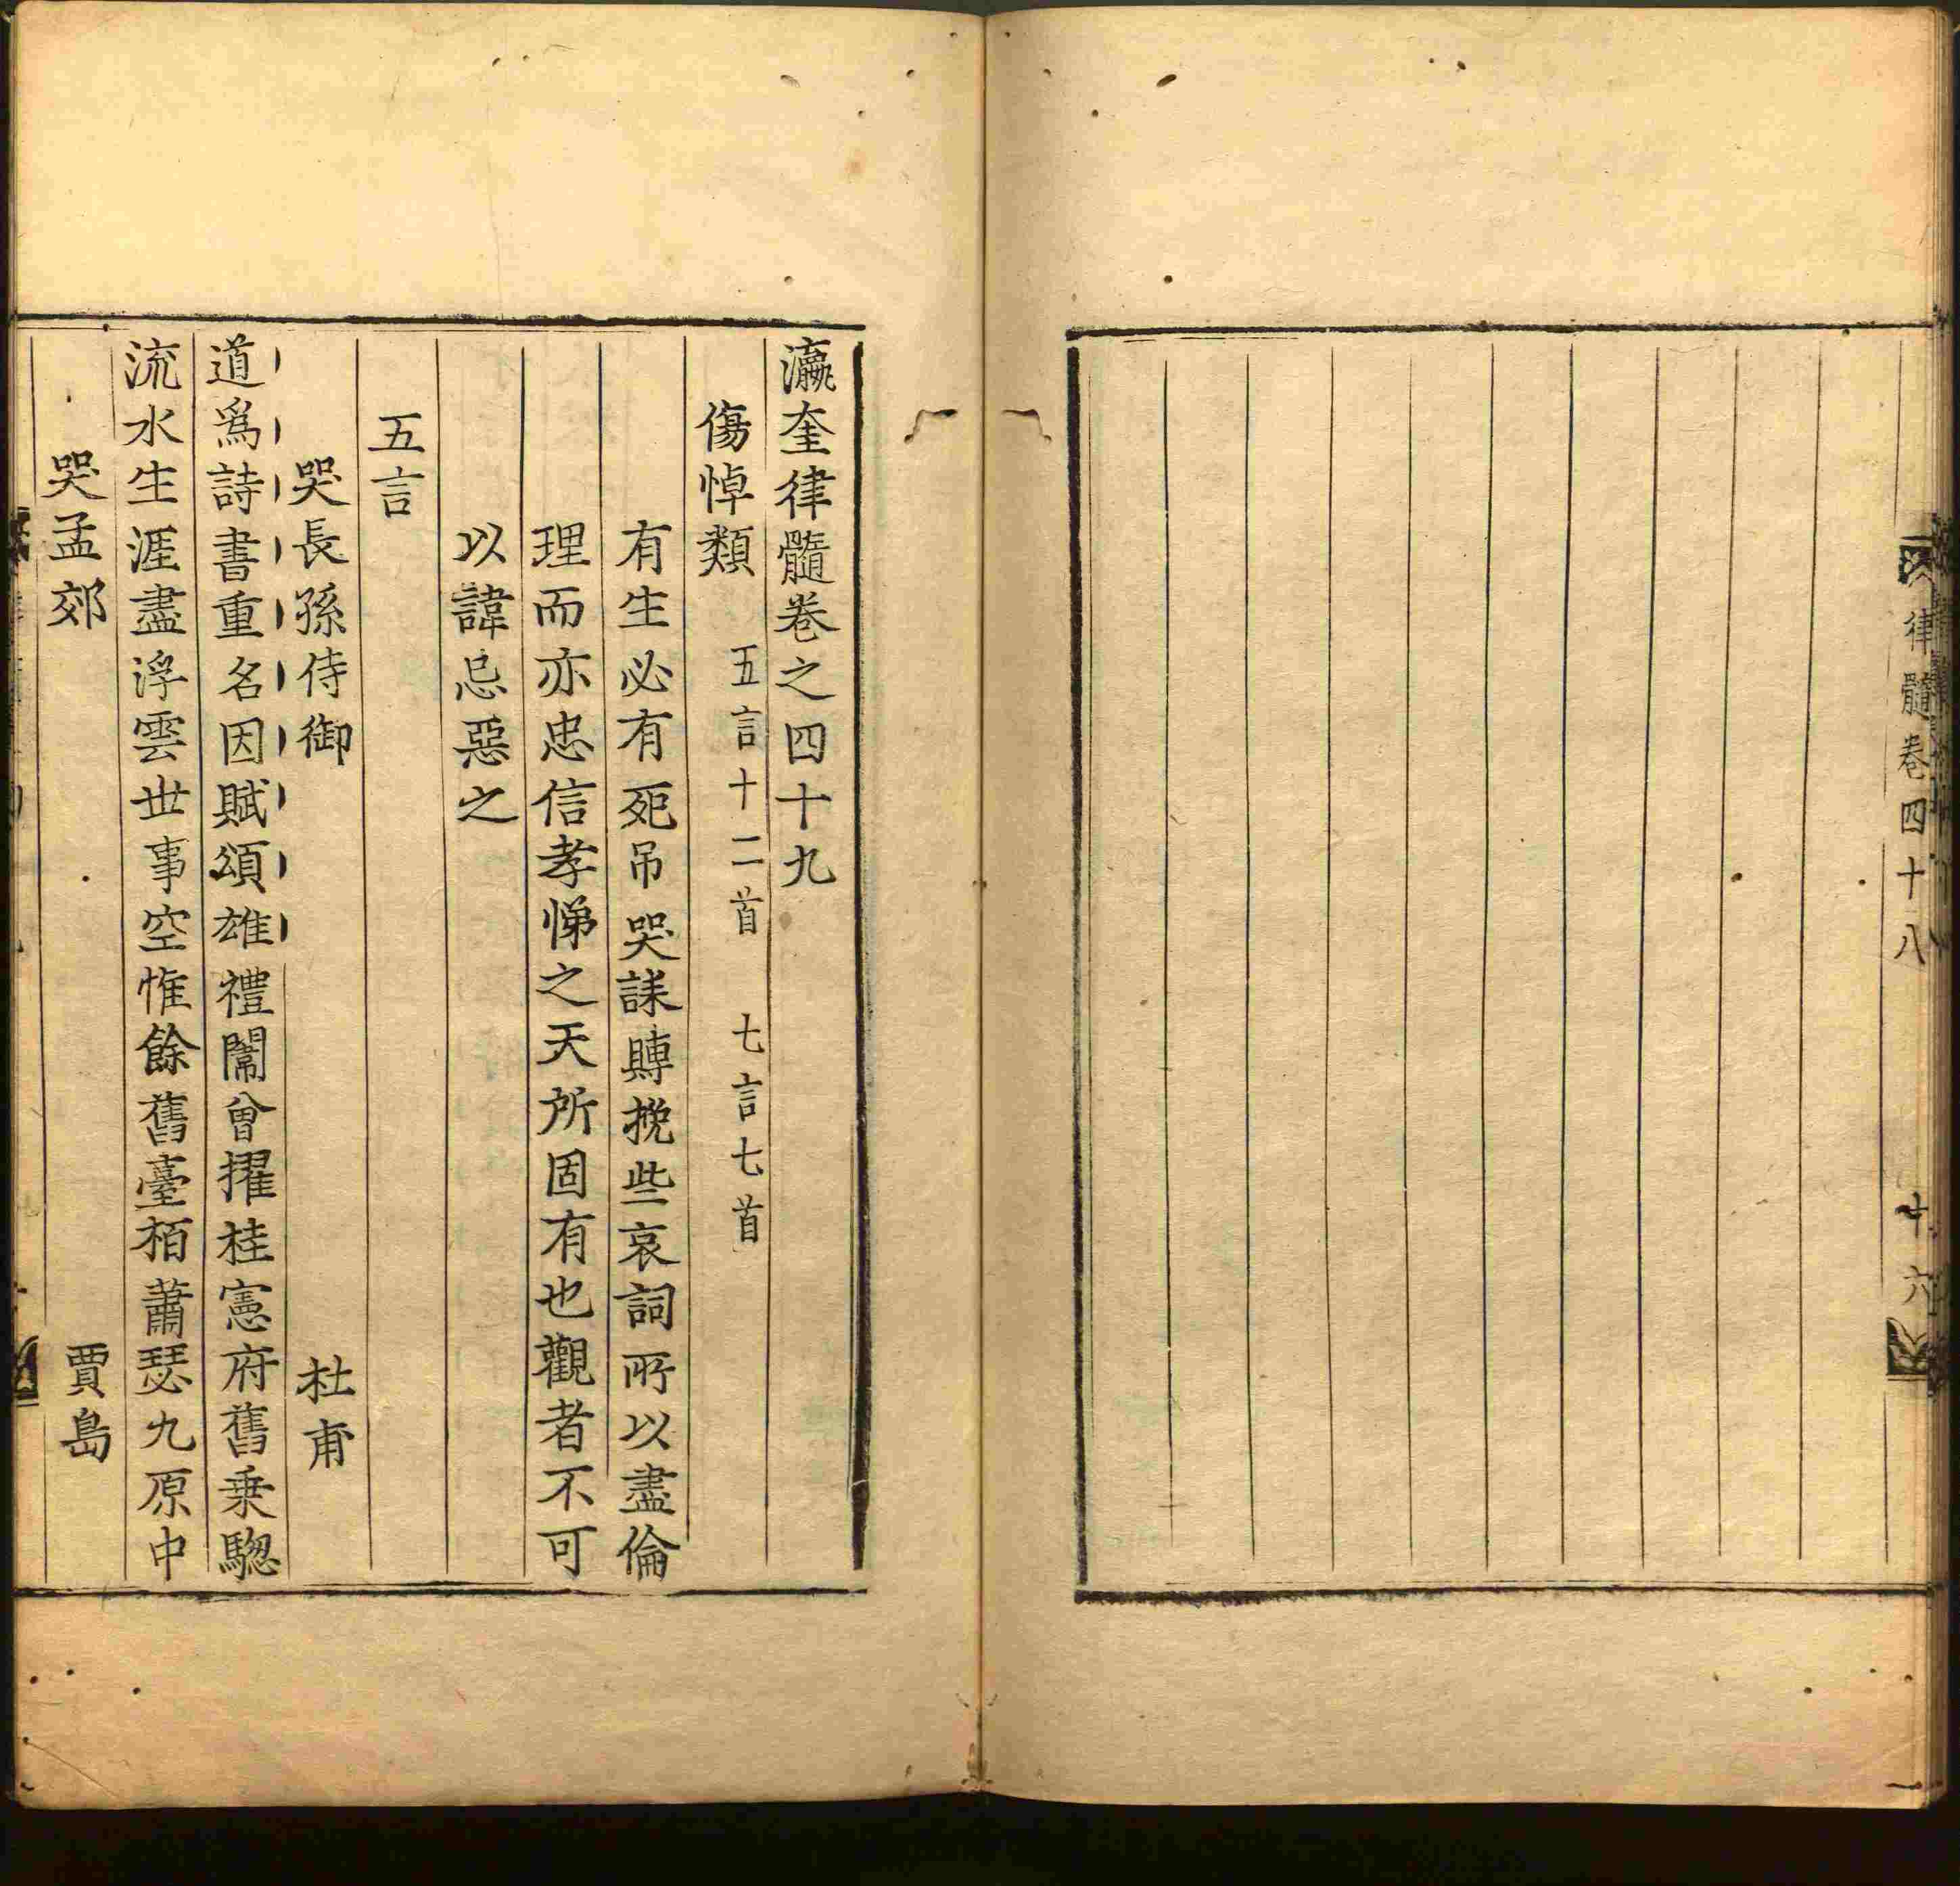 律髓卷四十八 十六
瀛奎律髓卷之四十九
傷悼類 五言十二首 七言七首
有生必有死吊哭誄賻挽些哀詞所以盡倫
理而亦忠信孝悌之天所固有也觀者不可
以諱忌惡之
五言
哭長孫侍御 杜甫
道爲詩書重名因賦頌雄禮闈曾擢桂憲府舊乗驄
流水生涯盡浮雲世事空惟餘舊臺栢蕭瑟九原中
哭孟郊 賈島